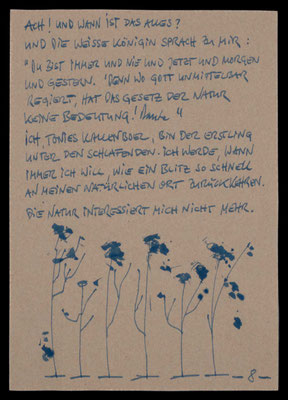 ACH! UND WANN IST DAS ALLES?
UND DIE WEISSE KÖNIGIN SPRACH ZU MIR:
"DU BIST IMMER UND NIE UND JETZT UND MORGEN
UND GESTERN. DENN WO GOTT UNMITTELBAR
REGIERT, HAT DAS GESETZ DER NATUR
KEINE BEDEUTUNG! Dante"
ICH, TONIES KALLENBOEL, BIN DER ERSTLING
UNTER DEN SCHLAFENDEN. ICH WERDE, WANN
IMMER ICH WILL, WIE EIN BLITZ SO SCHNELL
AN MEINEN NATÜRLICHEN ORT ZURÜCKKEHREN.
DIE NATUR INTERESSIERT MICH NICHT MEHR.
-8-